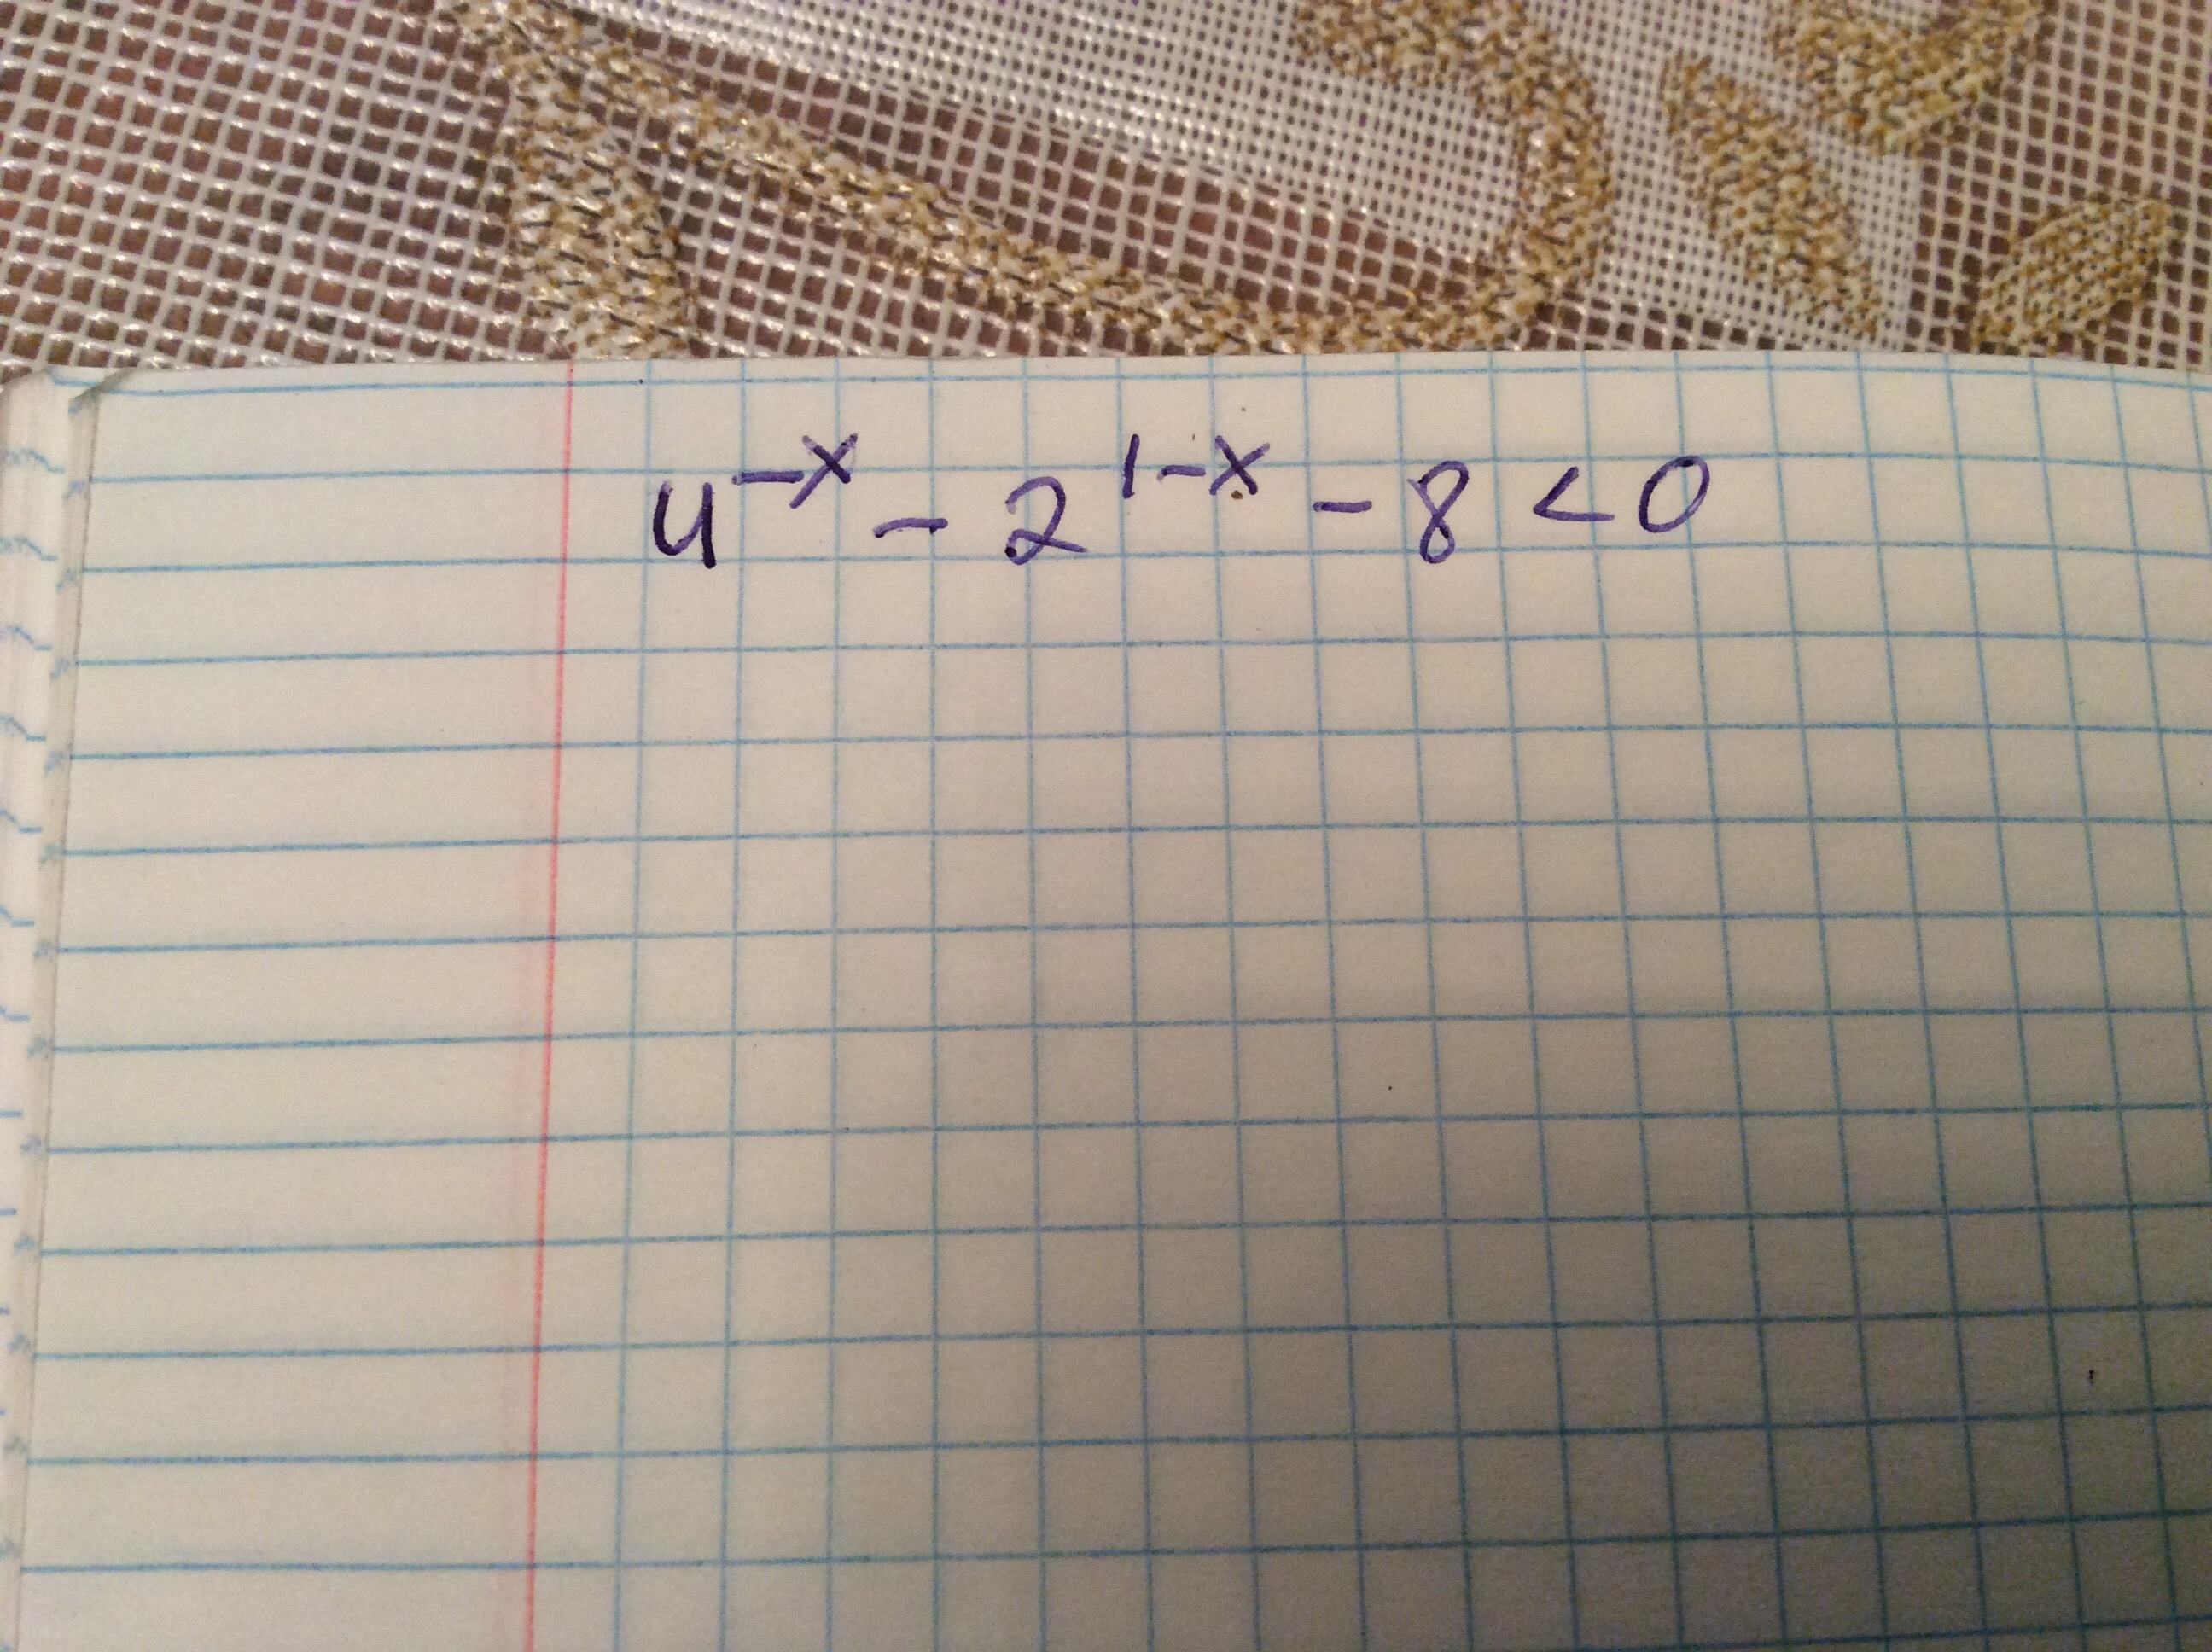 4^{-x} - 2^{1-x} - 8 < 0